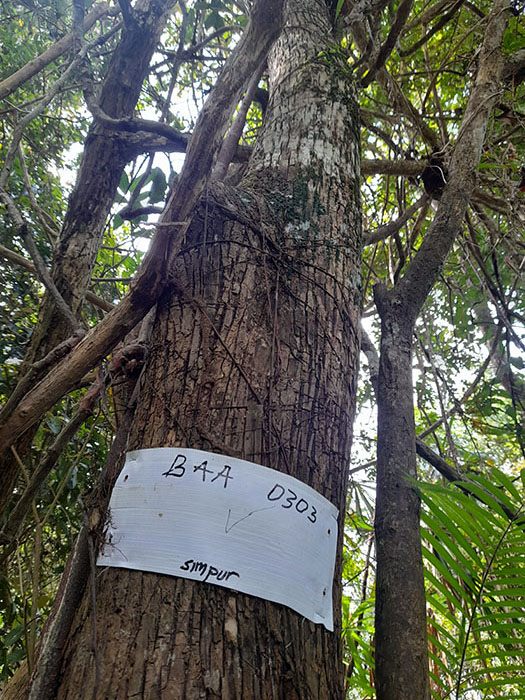 BAA D303
simpur